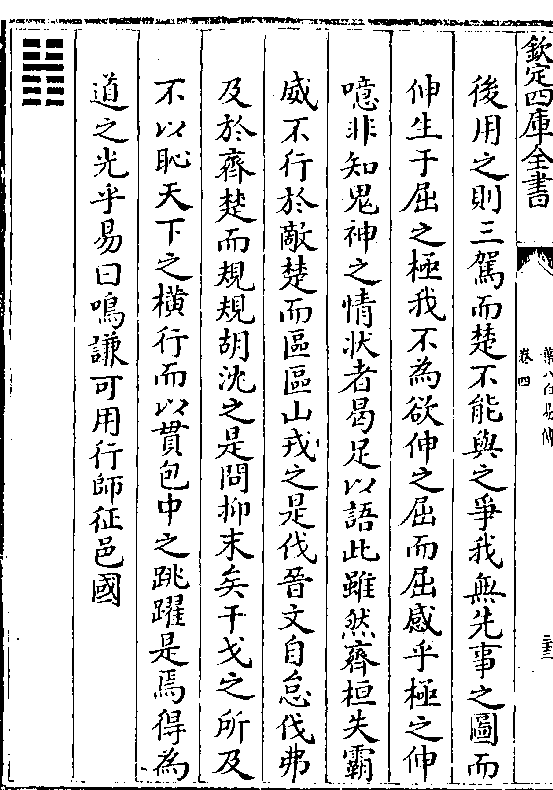 欽定四庫全書
卷四
後用之則三駕而楚不能與之爭我無先事之圖而
伸生于屈之極我不為欲伸之屈而屈感乎極之伸
噫非知鬼神之情狀者曷足以語此雖然齊桓失霸
威不行於敵楚而區區山戎之是伐晉文自怠伐弗
及於齊楚而規規胡沈之是問抑末矣干戈之所及
不以恥天下之橫行而以貫包中之跳躍是焉得為
道之光乎易曰鳴謙可用行師征邑國